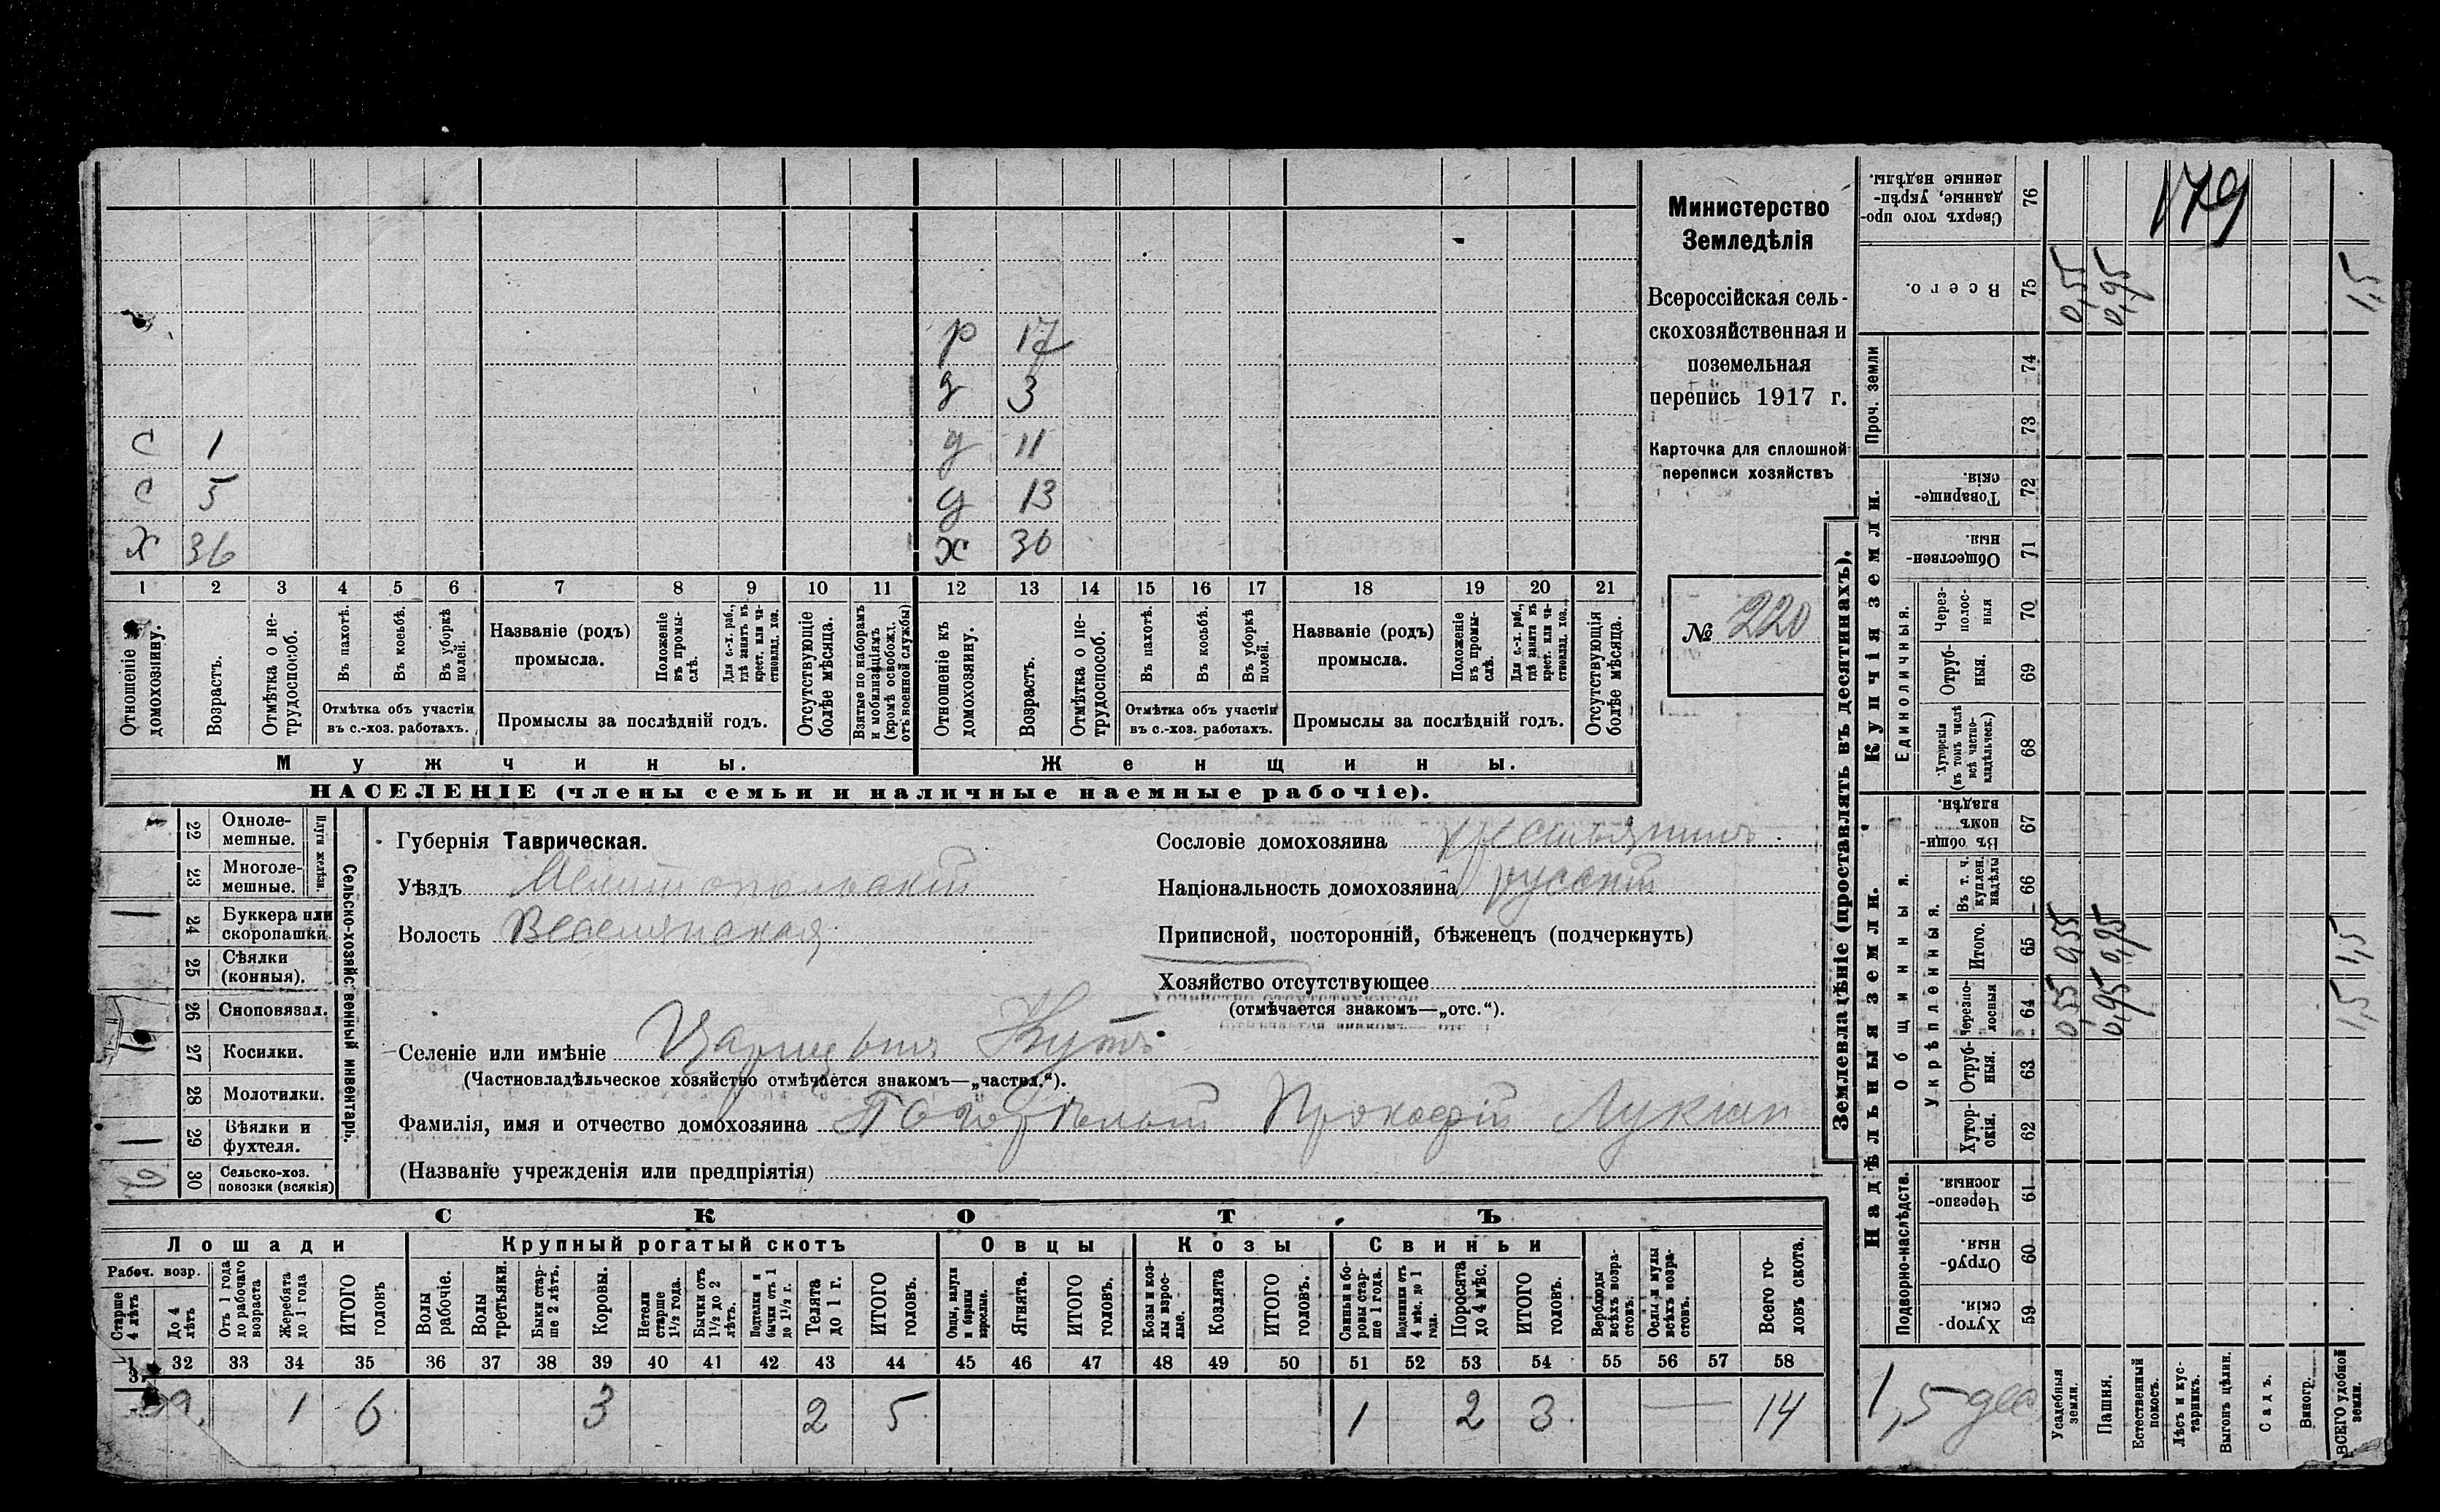 р 17
д 3
с 1 д 11
с 5 д 13
х 36 х 36
1 2 3 4 5 6 7 8 9 10 11 12 13 14 15 16 17 18 19 20 21
Отношеніе домохозяину.
Возрастъ.
Отмѣтка о нетрудоспособ.
Въ пахотѣ.
Въ косьбѣ.
Въ уборкѣ полей.
Отмѣтка объ участіи
въ с.-хоз. работахъ.
Названіе (родъ)
промысла.
Положеніе въ промыслѣ.
Для с.-х. раб., гдѣ занятъ въ крест. или частновлад. хоз.
Промыслы за послѣдній годъ.
Отсутствующіе болѣе мѣсяца.
Взятые по наборамъ и мобилизаціямъ (кромѣ освобожд. отъ военной службы)
Отношеніе къ домохозяину.
Возрастъ.
Отмѣтка о нетрудоспособ.
Въ пахотѣ.
Въ косьбѣ.
Въ уборкѣ полей.
Отмѣтка объ участіи
въ с.-хоз. работахъ.
Названіе (родъ)
промысла.
Положеніе въ промыслѣ.
Для с.-х. раб., гдѣ занята въ крест. или частновлад. хоз.
Промыслы за послѣдній годъ.
Отсутствующія болѣе мѣсяца.
Мужчины.
Женщины.
НАСЕЛЕНІЕ (члены семьи и наличные наемные рабочіе).
Министерство
Земледѣлія
Всероссійская сель-
скохозяйственная и
поземельная
перепись 1917 г.
Карточка для сплошной
переписи хозяйствъ
№ 220
Сельско-хозяйственный инвентарь.
Плуги желѣзн.
22 Однолемешные.
23 Многолемешные.
1 24 Буккера или скоропашки
25 Сѣялки (конныя).
26 Сноповязал.
1 27 Косилки.
28 Молотилки.
1 29 Вѣялки и фухтеля.
30 Сельско-хоз. повозки (всякія)
Губернія Таврическая.
Уѣздъ Мелитопольскій
Волость Веселянская
Сословіе домохозяина крестьянинъ
Національность домохозяина русскій
Приписной, посторонній, бѣженецъ (подчеркнуть)
Хозяйство отсутствующее
(отмѣчается знакомъ—„отс.“).
Селеніе или имѣніе Царицынъ Кутъ
(Частновладѣльческое хозяйство отмѣчается знакомъ—„частвл.“).
Фамилія, имя и отчество домохозяина Погорѣлый Прокофій Лукьян
(Названіе учрежденія или предпріятія)
СКОТЪ
Лошади Крупный рогатый скотъ Овцы Козы Свиньи
Рабоч. возр.
Старше 4 лѣтъ
До 4 лѣтъ
Отъ 1 года до рабочаго возраста
Жеребята до 1 года
ИТОГО головъ
Волы рабочіе.
Волы третьяки.
Быки старше 2 лѣтъ.
Коровы.
Нетели старше 1½ года.
Бычки отъ 1½ до 2 лѣтъ.
Подтелки и бычки отъ 1 до 1½ г.
Телята до 1 г.
ИТОГО головъ.
Овцы, валухи и бараны взрослые.
Ягнята.
ИТОГО головъ.
Козы и козлы взрослые.
Козлята
ИТОГО головъ.
Свиньи и боровы старше 1 года.
Подсвинки отъ 4 мѣс. до 1 года.
Поросята до 4 мѣс.
ИТОГО головъ.
Верблюды всѣхъ возрастовъ.
Ослы и мулы всѣхъ возрастовъ.
Всего головъ скота.
32 33 34 35 36 37 38 39 40 41 42 43 44 45 46 47 48 49 50 51 52 53 54 55 56 57 58
1 6 3 2 5 1 2 3 — 14
Землевладѣніе (проставлять въ десятинахъ).
Купчія земли.
Надѣльныя земли.
Проч. земли
Единоличныя.
Общинныя.
Укрѣпленныя.
Подворно-наслѣдств.
Сверхъ того проданные, укрѣпленные надѣлы. 76 179
Всего. 75 0,55 0,95 1,5
74
73
Товарищескія. 72
Общественныя. 71
Черезполосныя 70
Отрубныя. 69
Хуторскія (въ томъ числѣ всѣ частновладѣльческ.) 68
Въ общинномъ владѣн. 67
Въ т. ч. куплен. надѣлы 66
Итого. 65 0,55 0,95 1,5
Черезполосныя 64 0,55 0,95 1,5
Отрубныя. 63
Хуторскія. 62
Черезполосныя. 61
Отрубныя. 60
Хуторскія. 59
1,5 дес
Усадебныя земли.
Пашня.
Естественный покосъ.
Лѣсъ и кустарникъ.
Выгонъ цѣлин.
Садъ.
Виногр.
ВСЕГО удобной земли.